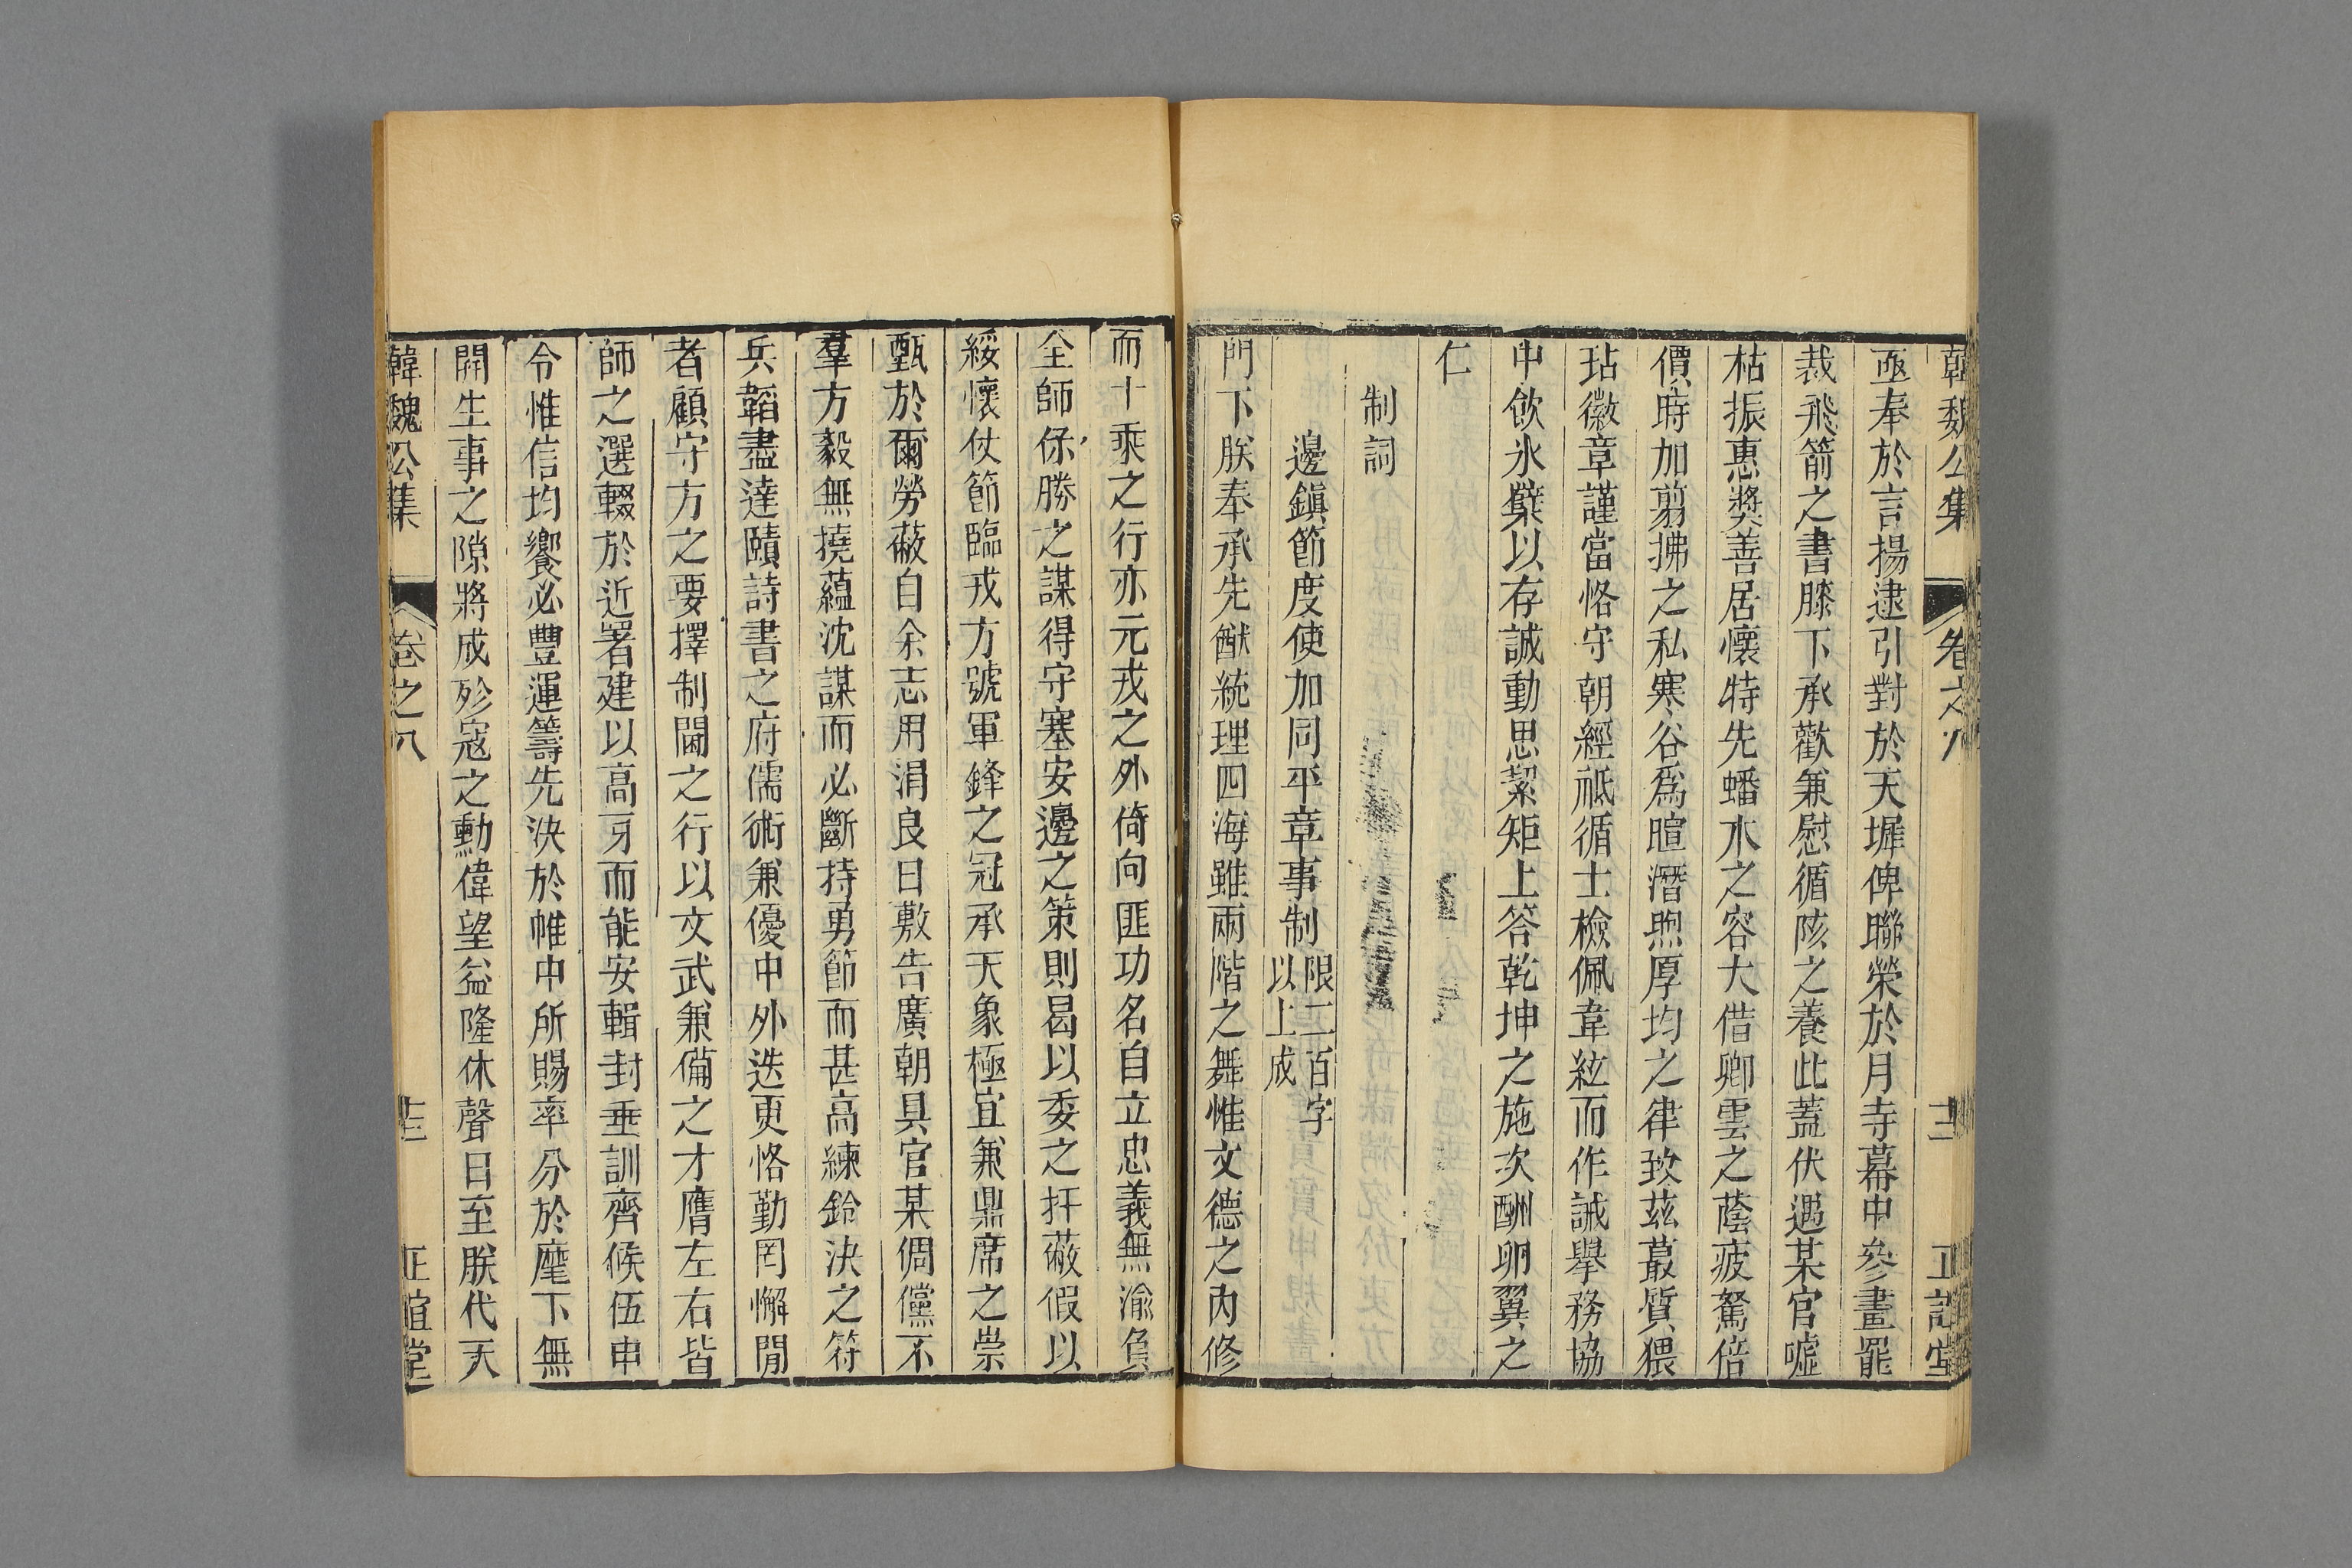 韓魏公集 卷之八 十二 正誼堂
亟奉於言揚逮引對於天墀俾聯榮於月寺幕中參畫罷
裁飛箭之書膝下承歡兼慰循陔之養此蓋伏遇某官噓
枯振惠獎善居懷特先蟠木之容大借卿雲之蔭疲駑倍
價時加剪拂之私寒谷爲暄潛煦厚均之律致茲蕞質猥
玷徽章謹當恪守朝經祗循士檢佩韋紘而作誡舉務協
中飲氷櫱以存誠動思絜矩上答乾坤之施次酬卵翼之
仁
制詞
邊鎭節度使加同平章事制限二百字以上成
門下朕奉承先猷統理四海雖兩階之舞惟文德之內修
而十乘之行亦元戎之外倚向匪功名自立忠義無渝負
全師保勝之謀得守塞安邊之策則曷以委之扞蔽假以
綏懷仗節臨戎方號軍鋒之冠承天象極宜兼鼎席之崇
甄於爾勞蔽自余志用涓良日敷告廣朝具官某倜儻不
羣方毅無撓蘊沈謀而必斷持勇節而甚高練鈐決之符
兵韜盡達賾詩書之府儒術兼優中外迭更恪勤罔懈閒
者顧守方之要擇制閫之行以文武兼備之才膺左右皆
師之選輟於近署建以高牙而能安輯封垂訓齊候伍申
令惟信均饗必豐運籌先決於帷中所賜率分於麾下無
開生事之隙將成殄寇之勳偉望益隆休聲日至朕代天
韓魏公集 卷之八 十三 正誼堂